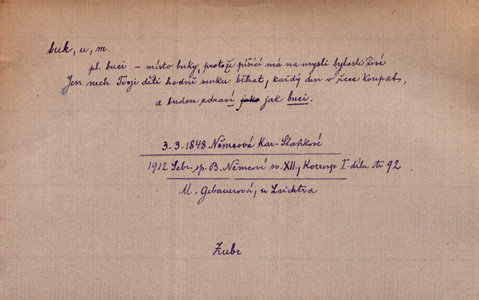 buk, u, m.
pl. buci – místo buky, protože píšící má na mysli bytosti živé
Jen nech Tvoje děti hodně venku běhat, každý den v řece koupat,
a budou zdraví jako jak buci.
3.3.1848 Němcová Kar. Staňkové
1912 Sebr. sp. B. Němcové sv. XII., Koresp I. dílu str 92
M. Gebauerová, u Laichtra
Zubr